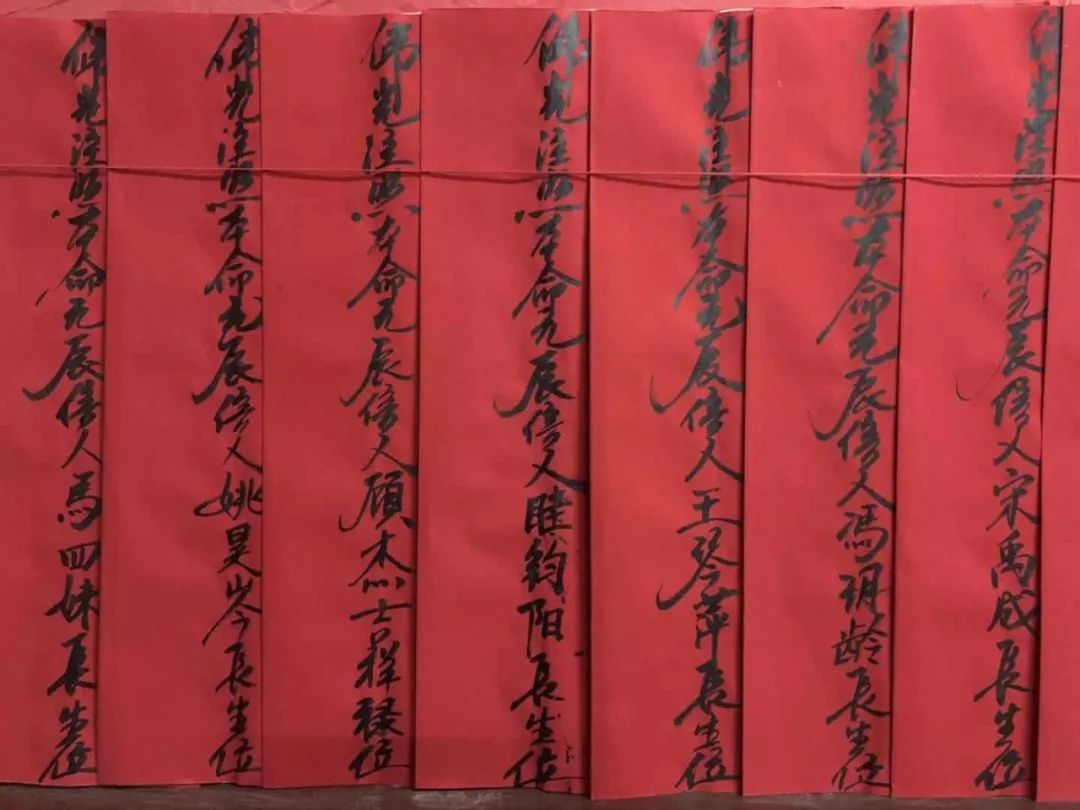 佛光注照本命元辰信人宋禹成長生位
佛光注照本命元辰信人馮玥龄長生位
佛光注照本命元辰信人王琴萍長生位
佛光注照本命元辰信人眭鈞阳長生位
佛光注照本命元辰信人顾杰士禄位
佛光注照本命元辰信人姚昊岑長生位
佛光注照本命元辰信人馬四妹長生位